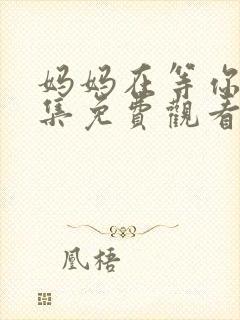 妈妈在等你
集免費觀看
凰梧